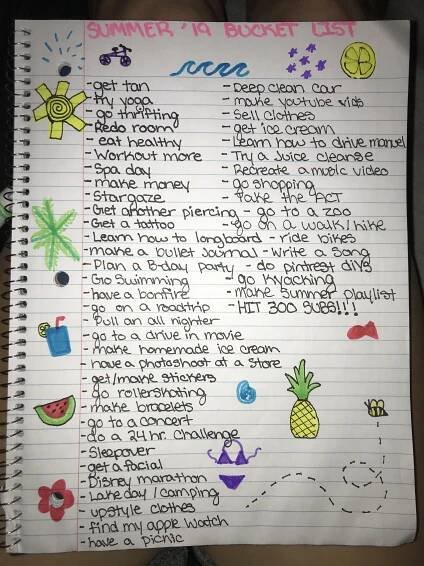 SUMMER '19 BUCKET LIST
- get tan
- try yoga
- go thrifting
- Redo room
- eat healthy
- Workout more
- Spa day
- make money
- Stargaze
- Get another piercing
- Get a tattoo
- Learn how to longboard
- make a bullet Journal
- Plan a B-day party
- Go Swimming
- have a bonfire
- go on a roadtrip
- Pull an all nighter
- go to a drive in movie
- make homemade ice cream
- have a photoshoot at a store
- get/make stickers
- go rollerskating
- make bracelets
- go to a concert
- do a 24 hr. challenge
- Sleepover
- get a facial
- Disney marathon
- Lake day / camping
- upstyle clothes
- find my apple watch
- have a picnic
- Deep clean car
- make youtube vids
- Sell clothes
- get ice cream
- Learn how to drive manuel
- Try a Juice cleanse
- Recreate a music video
- go shopping
- Take the ACT
- go to a zoo
- go on a walk/hike
- ride bikes
- Write a Song
- do pintrest diys
- go Kyacking
- make Summer Playlist
- HIT 300 SUBS!!!